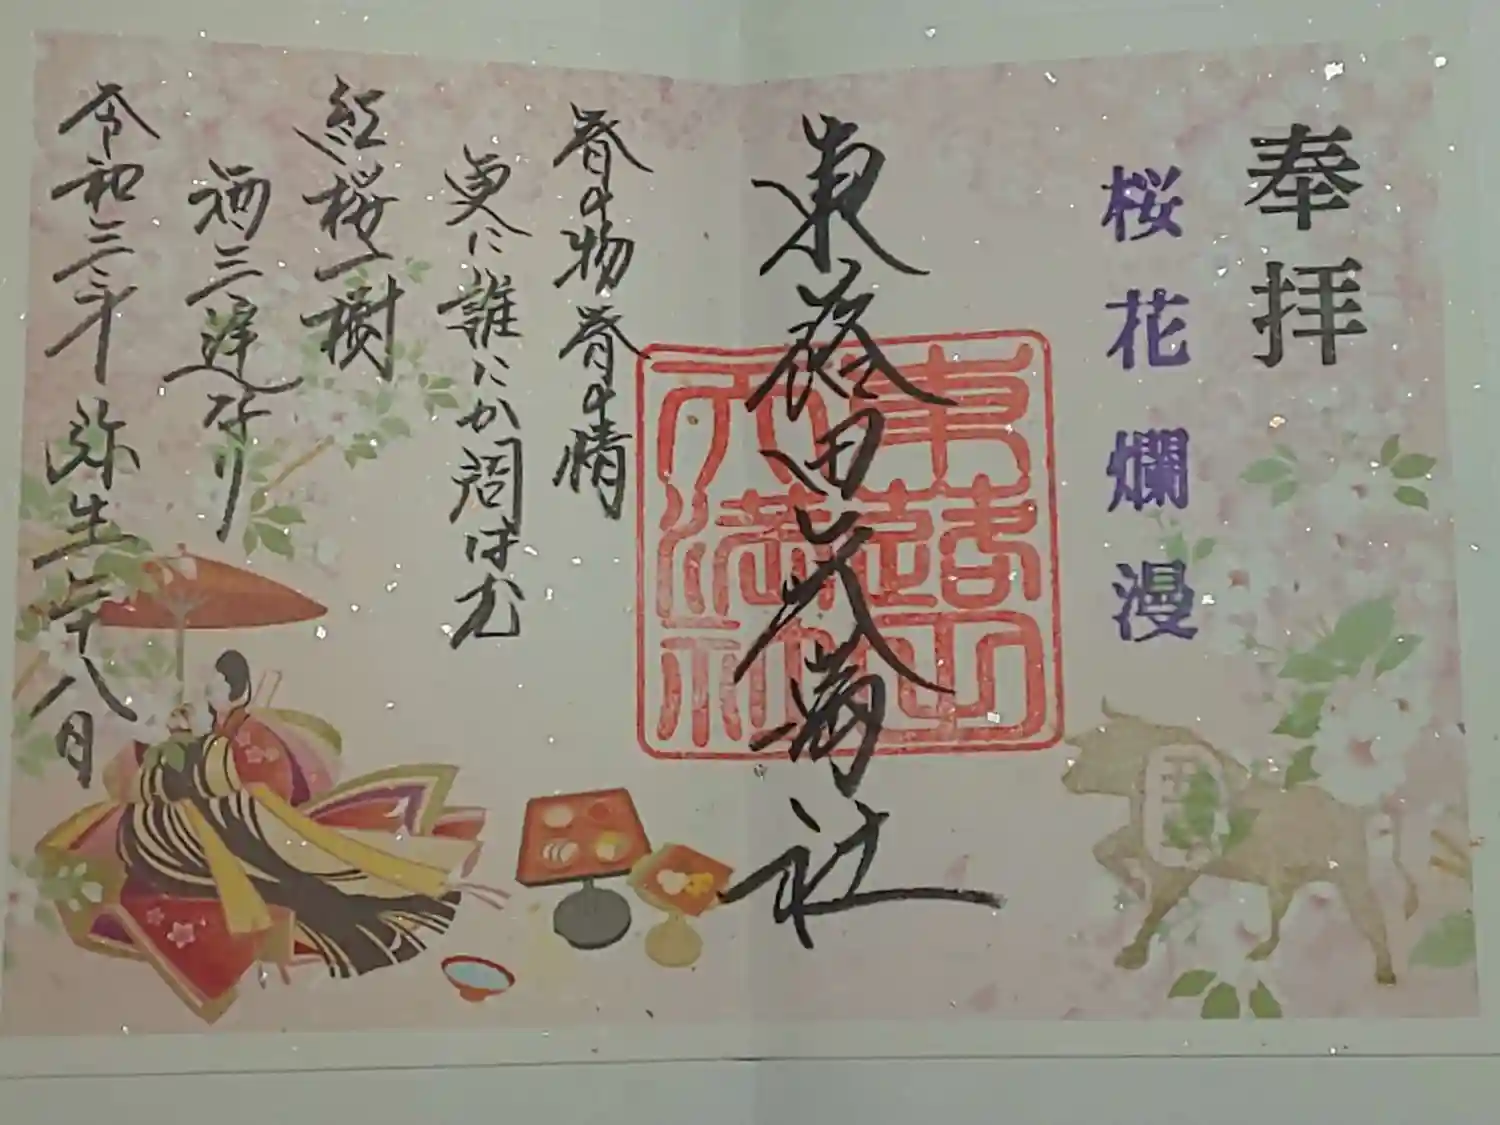 奉拝
桜花爛漫
東蕗田天満社
東蕗田
天満社
春の物春の情
更に誰にか問はむ
紅桜一樹
酒三遅なり
令和三年 弥生二十八日